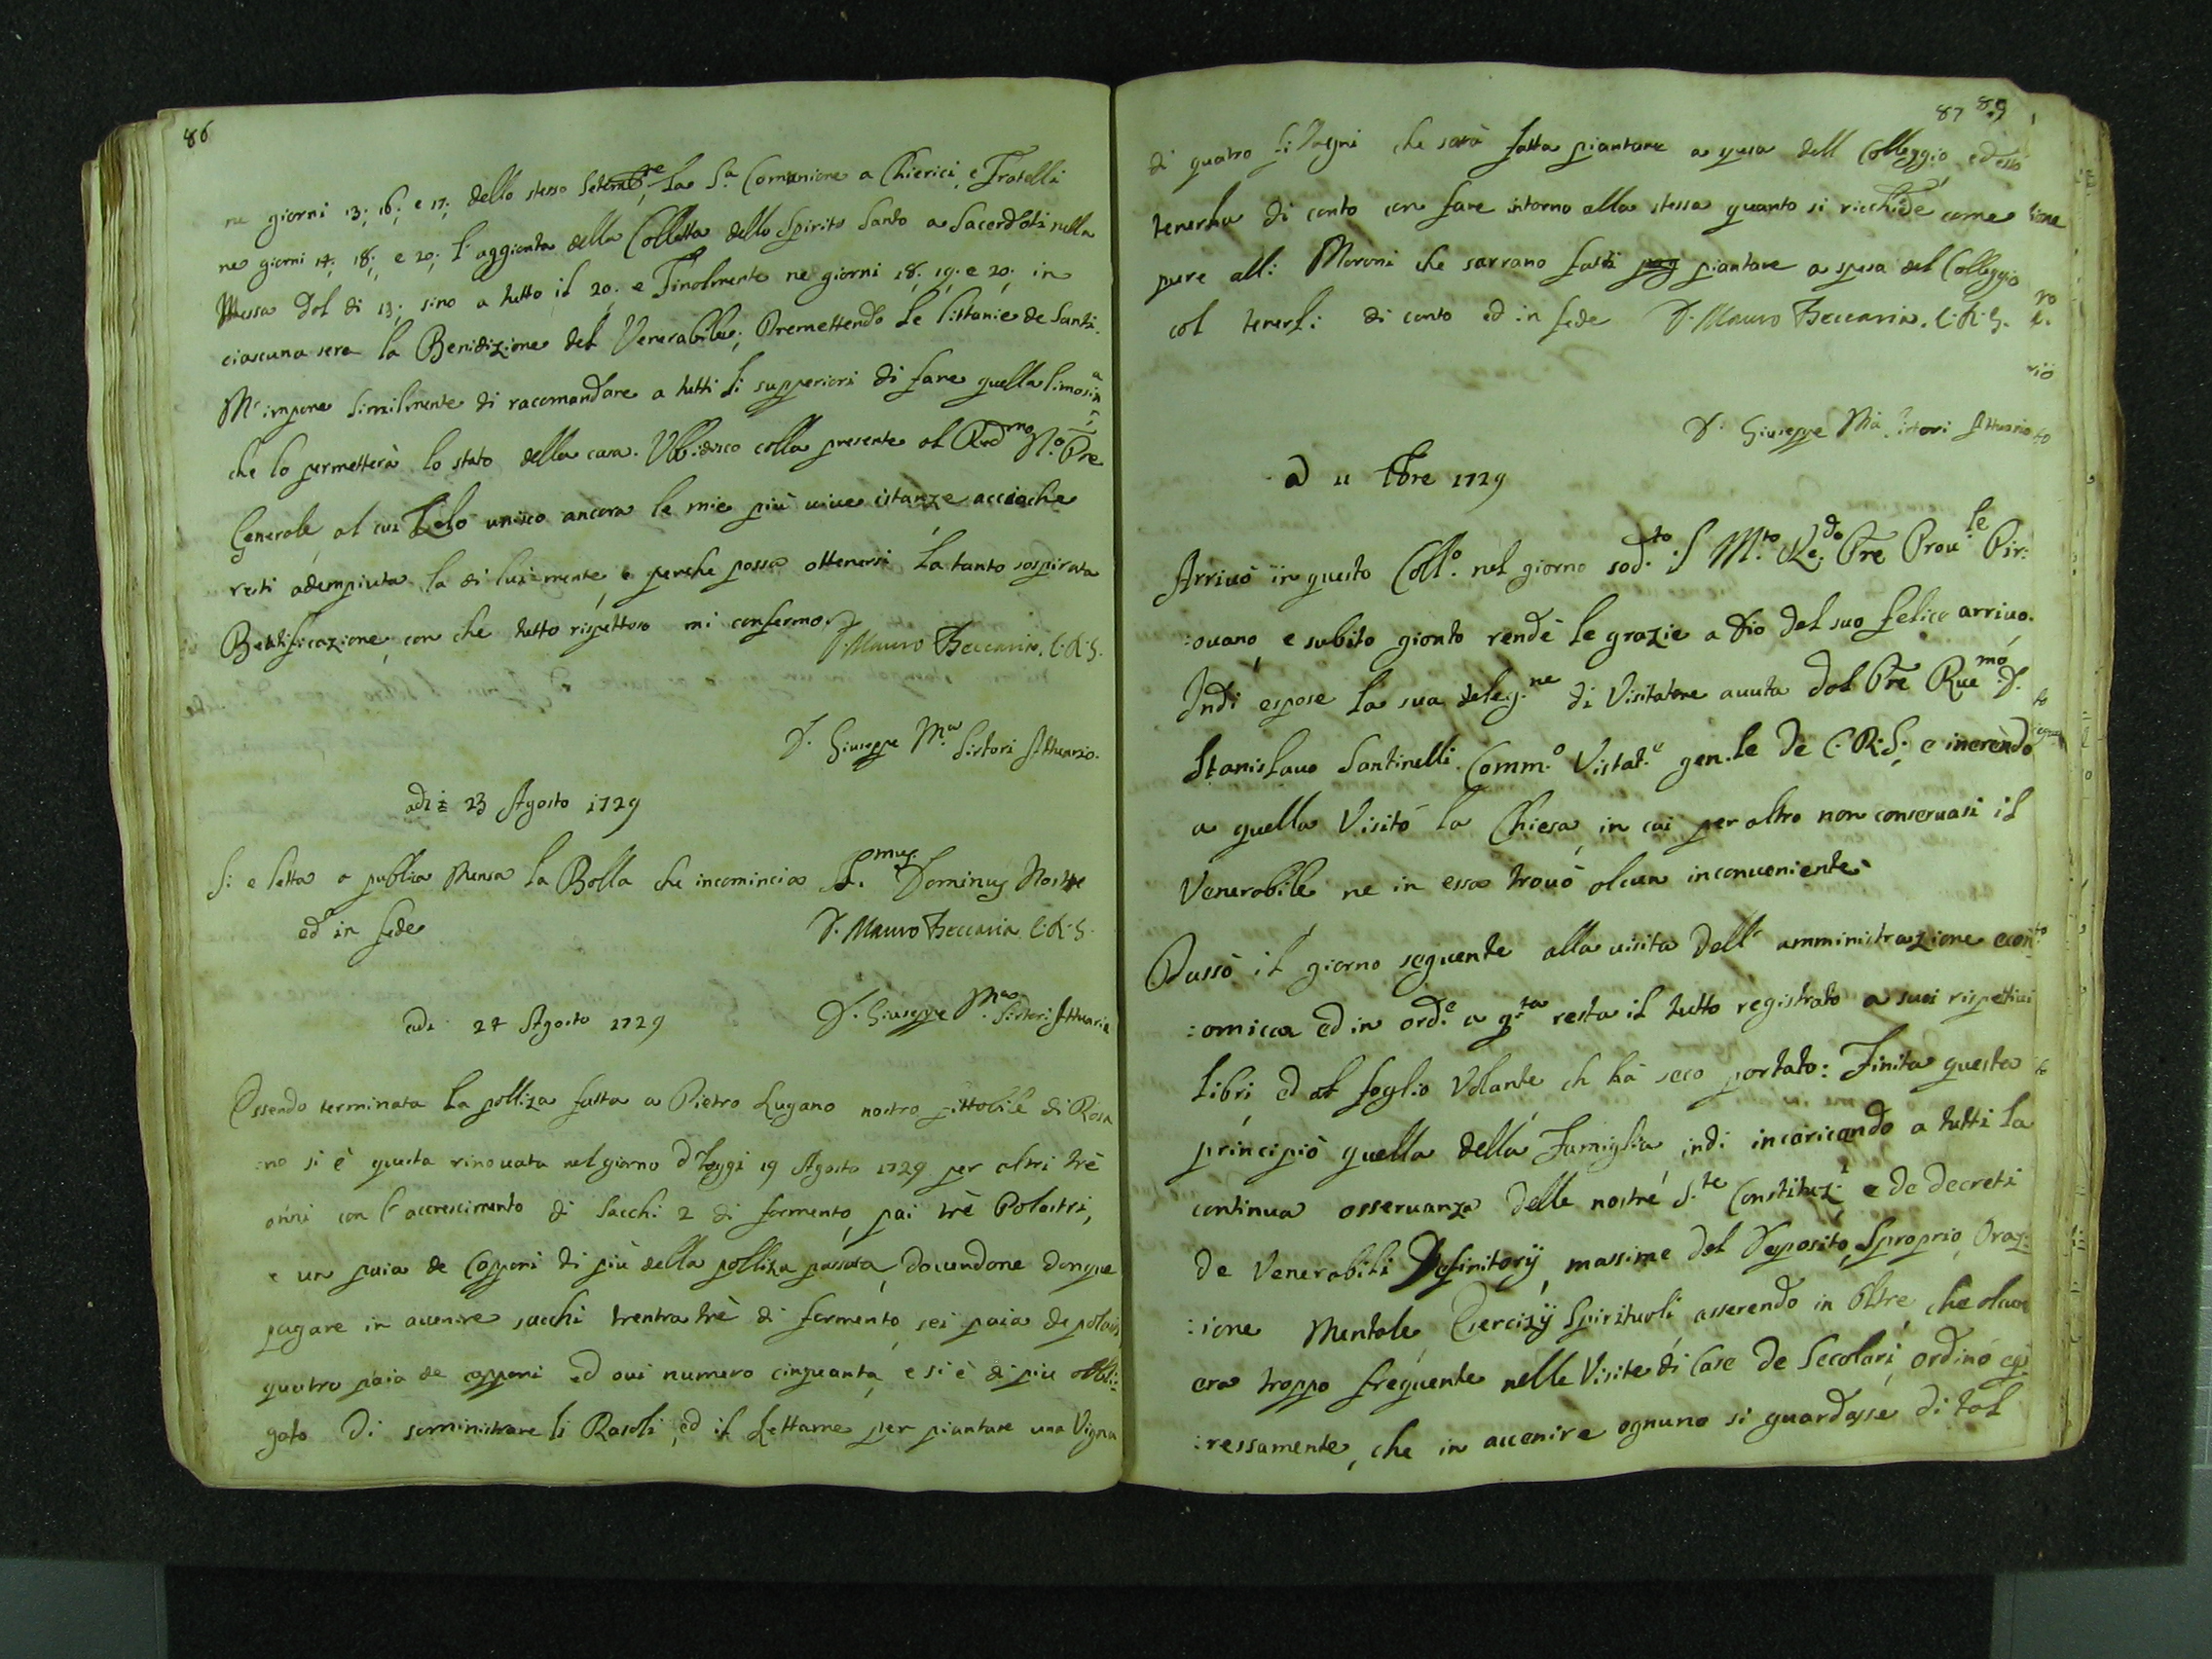 86
ne giorni 13; 16; e 17; dello stesso Setembre, la S.a Comunione a Chierici, e Fratelli
ne giorni 14; 18; e 20; l'aggionta della Colletta dello Spirito Santo a Sacerdoti nella
Messa dal di 13; sino a tutto il 20. e Finalmente ne giorni 18; 19; e 20; in
ciascuna sera la Benidizione del Venerabile, Premettendo le littanie de Santi.
M'impone similmente di racomandare a tutti li supperiori di fare quella limosina
che lo permetterà lo stato della casa. Ubbidisco colla presente al Rmo N.o Pre
Generale, al cui Zelo unisco ancora le mie più uiue istanze acciòche
resti adempiuta la di lui mente, e perche possa ottenersi la tanto sospirata
Beatificazione, con che tutto rispettoso mi confermo
D. Mauro Beccaria. C.R.S.
D. Giuseppe M.a Sirtori Attuario.
adi 23 Agosto 1729
Si e letta a publica Mensa la Bolla che incomincia SS.mus Dominus Noster
ed in fede D. Mauro Beccaria C.R.S.
D. Giuseppe M.a Sirtori Attuario
adi 24 Agosto 1729
Essendo terminata la polliza fatta a Pietro Lugano nostro fittabile di Rosa
:no si è questa rinouata nel giorno d'hoggi 19 Agosto 1729 per altri trè
anni con l'accrescimento di Sacchi 2 di formento, pai trè Polastri,
e un paia de Capponi di più della polliza passata, douendone donque
pagare in auenire sacchi trentatrè di formento, sei paia de polastri,
quatro paia de capponi ed oui numero cinquanta, e si è di più obbli:
gato di soministrare li Rasoli, ed il Lettame per piantare una Vigna
87 89
di quatro filagni che sarà fatta piantare a spesa dell Colleggio, ed esso
tenerla di conto con fare intorno alla stessa quanto si ricchide, come
pure alli Moroni che sarrano fatti piantare a spesa del Colleggio
col tenerli di conto ed in fede D. Mauro Beccaria. C.R.S.
D. Giuseppe Ma Sirtori Attuario
A 11 8bre 1729
Arriuò in questo Coll.o nel giorno sod.to il M.to Re.do Pre Prou.le Pir:
:ouano, e subito gionto rendè le grazie a Dio del suo felice arriuo.
Indi espose la sua deleg.ne di Visitatore auuta dal Pre Rue.mo D.
Stanislauo Santinelli Comm.o Visitat.e gen.le de C.R.S, e inerendo
a quella Visitò la Chiesa, in cui per altro non conseruasi il
Venerabile ne in essa trouò alcun inconueniente
Passò il giorno seguente alla uisita dell' amministrazione econ:
:omica ed in ord.e a q.ta resta il tutto registrato a suoi rispettiui
Libri, ed al foglio Volante ch hà seco portato: Finita questa
principiò quella della Famiglia indi incaricando a tutti la
continua osseruanza delle nostre S.te Constituz.i e de decreti
de Venerabili Definitorij, massime del Deposito, Sproprio, Oraz:
:ione Mentale, Esercizij Spirituali asserendo in Oltre, che alcun
era troppo frequente nelle Visite di Case de Secolari, ordinò esp:
:ressamente, che in auenire ognuno si guardasse di tal